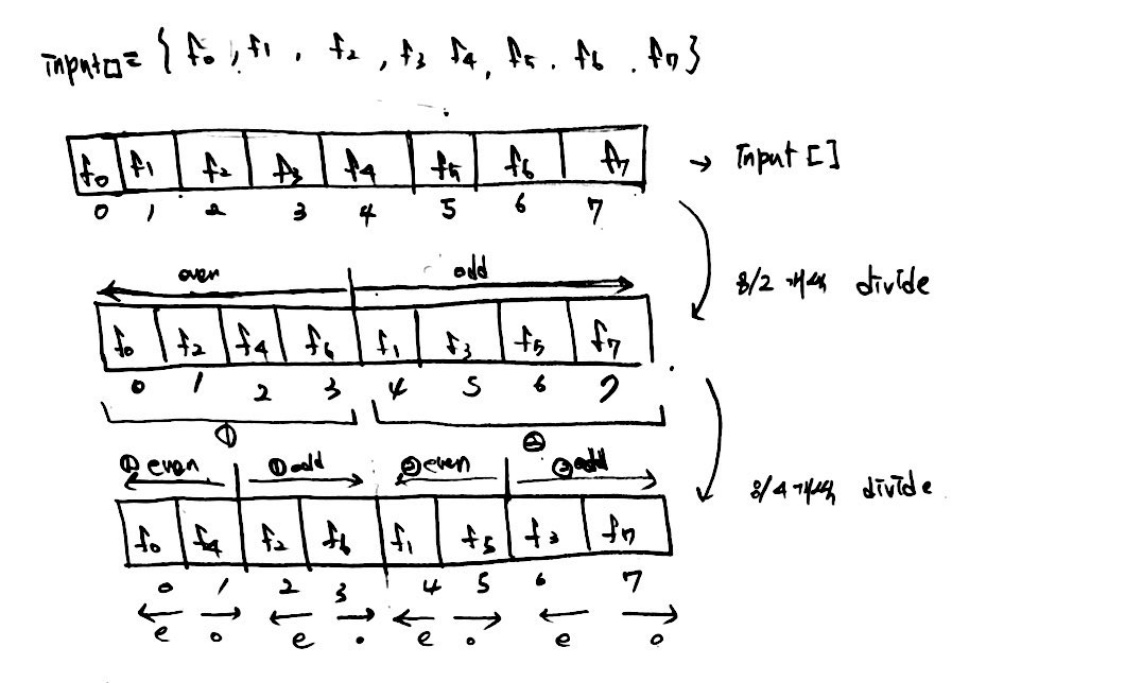 input[]= { f0 , f1 , f2 , f3 f4, f5 . f6 . f7 }
f0 f1 f2 f3 f4 f5 f6 f7 → Input []
0 1 2 3 4 5 6 7
8/2 개씩 divide
even odd
f0 f2 f4 f6 f1 f3 f5 f7
0 1 2 3 4 5 6 7
① ②
① even ① odd ② even ② odd
8/4 개씩 divide
f0 f4 f2 f6 f1 f5 f3 f7
0 1 2 3 4 5 6 7
e o e o e o e o